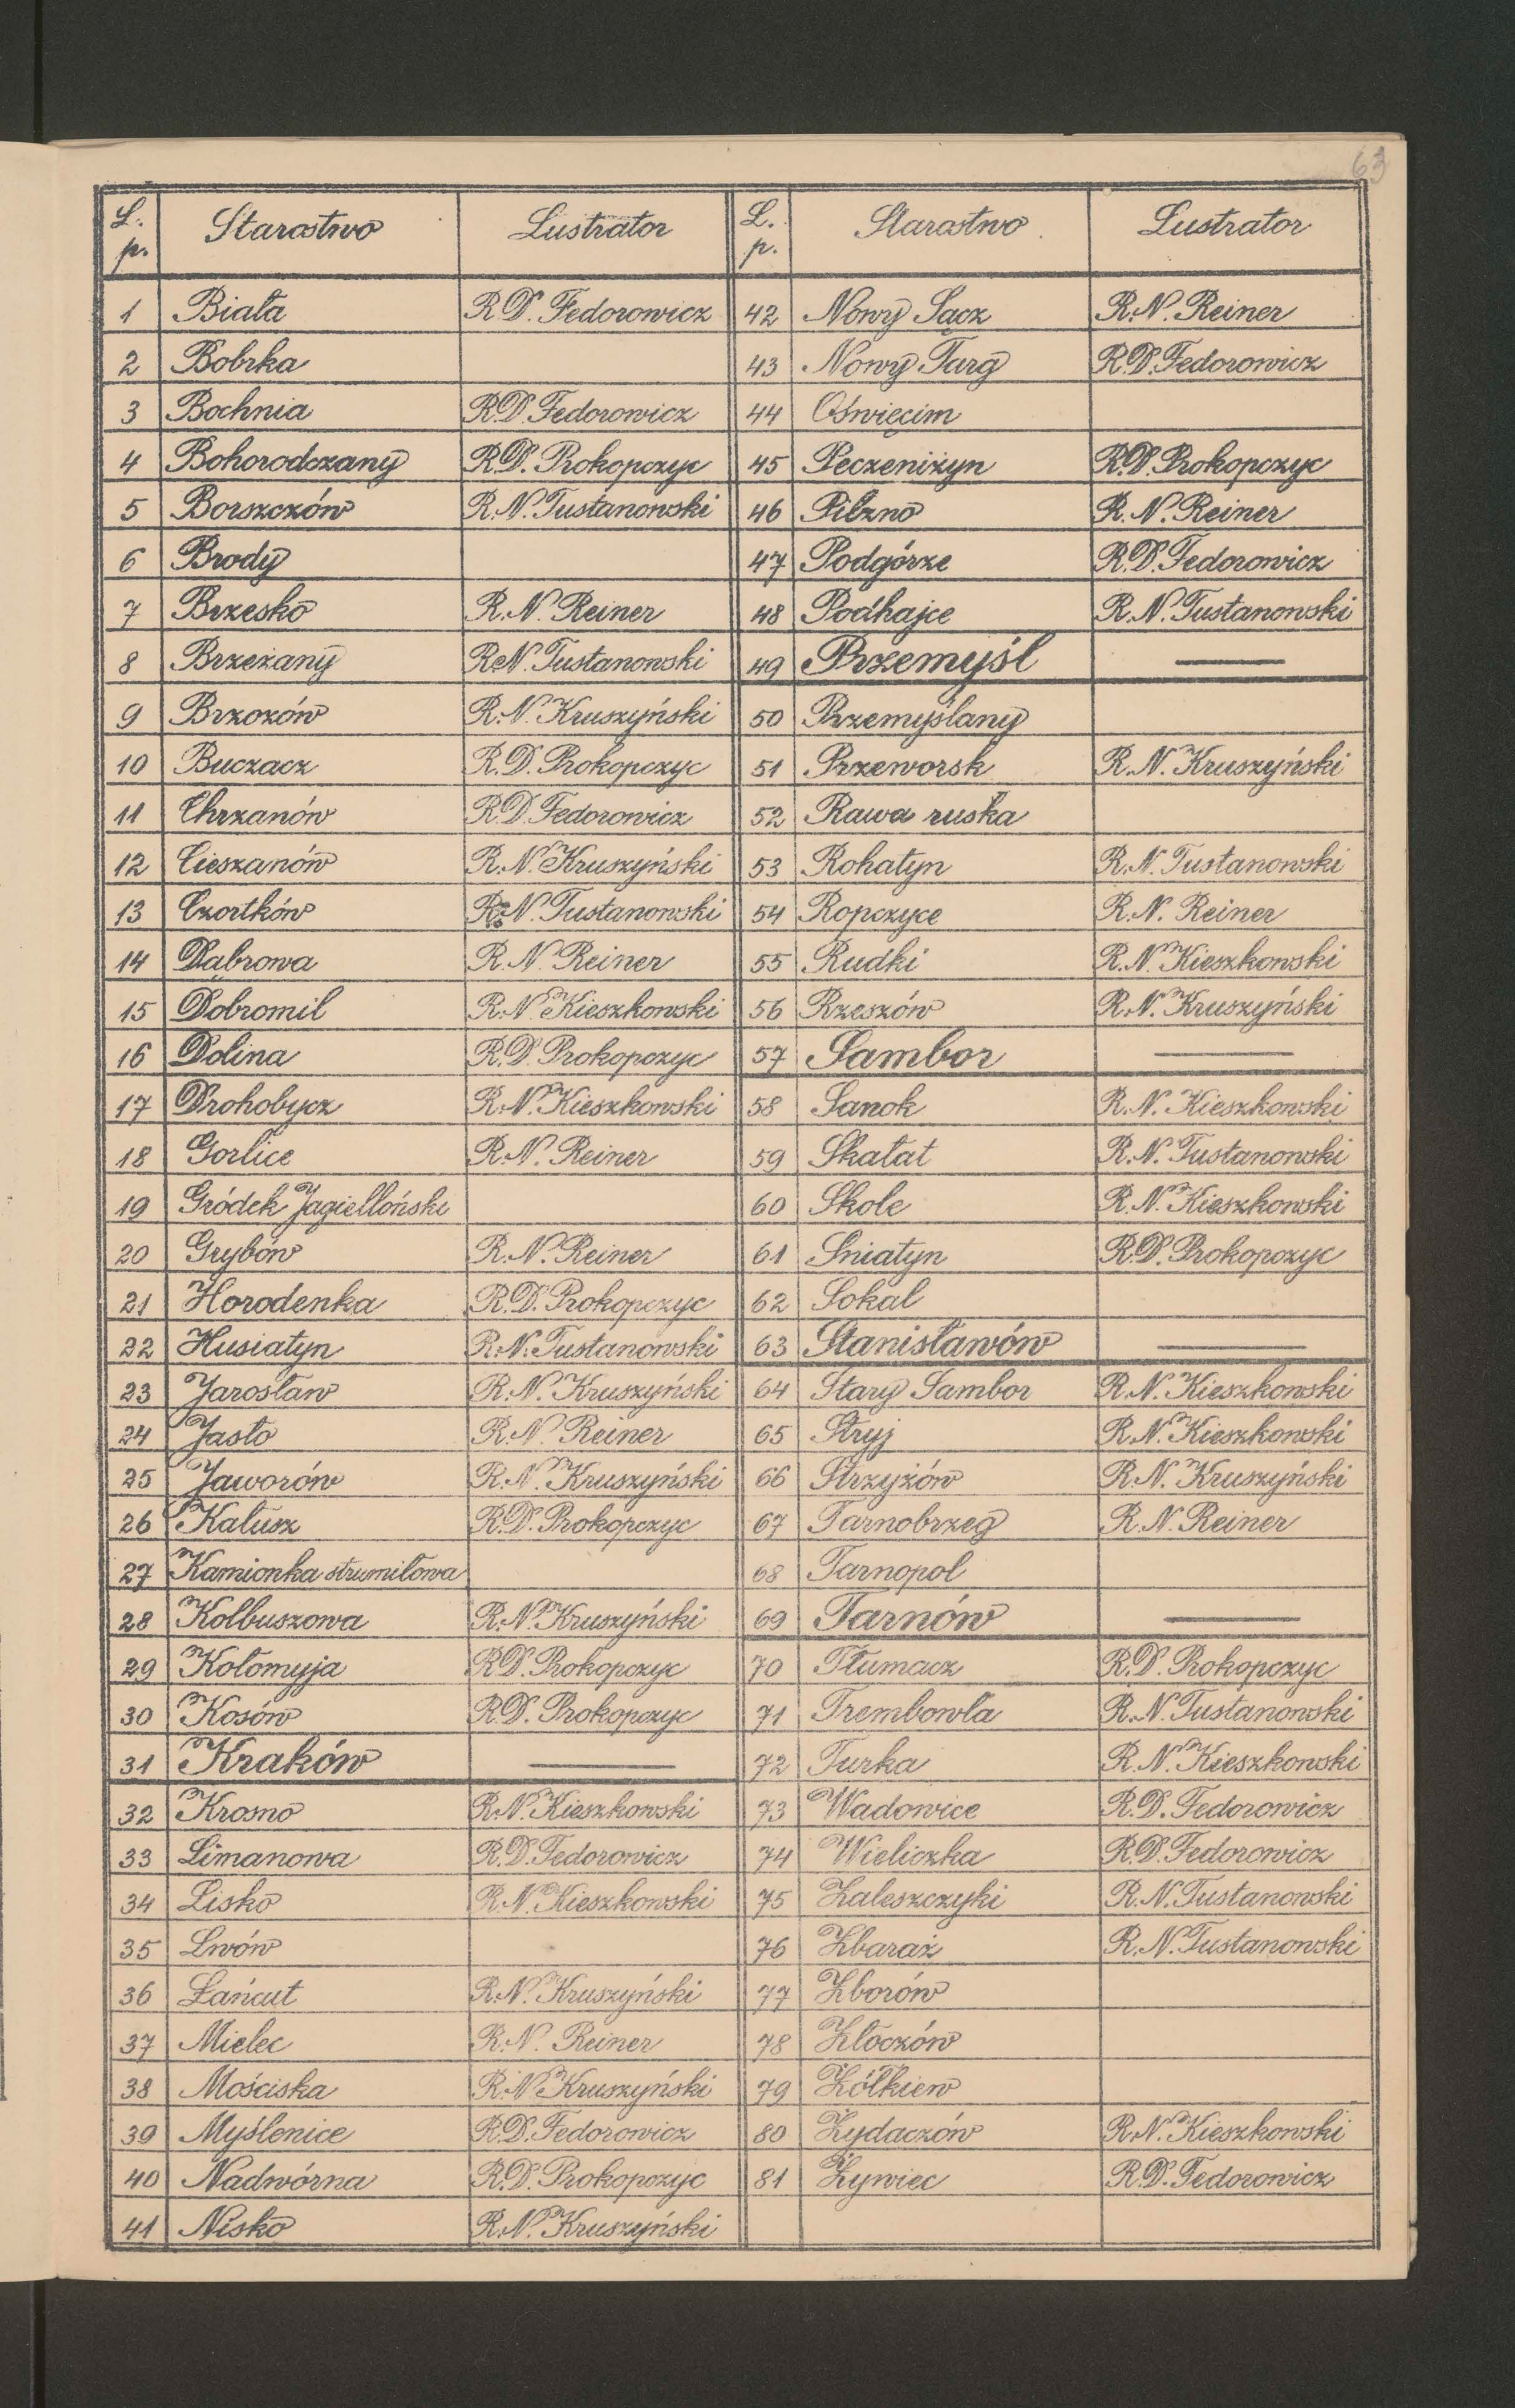 63
L. p. Starostwo Lustrator L. p. Starostwo Lustrator
1 Biała R.D. Fedorowicz 42 Nowy Sącz R.N. Reiner
2 Bobrka 43 Nowy Targ R.D. Fedorowicz
3 Bochnia R.D. Fedorowicz 44 Oświęcim
4 Bohorodczany R.D. Prokopczyc 45 Peczeniżyn R.D. Prokopczyc
5 Borszczów R.N. Tustanowski 46 Pilzno R.N. Reiner
6 Brody 47 Podgórze R.D. Fedorowicz
7 Brzesko R.N. Reiner 48 Podhajce R.N. Tustanowski
8 Brzeżany R.N. Tustanowski 49 Przemyśl —
9 Brzozów R.N. Kruszyński 50 Przemyślany
10 Buczacz R.D. Prokopczyc 51 Przeworsk R.N. Kruszyński
11 Chrzanów R.D. Fedorowicz 52 Rawa ruska
12 Cieszanów R.N. Kruszyński 53 Rohatyn R.N. Tustanowski
13 Czortków R.N. Tustanowski 54 Ropczyce R.N. Reiner
14 Dąbrowa R.N. Reiner 55 Rudki R.N. Kieszkowski
15 Dobromil R.N. Kieszkowski 56 Rzeszów R.N. Kruszyński
16 Dolina R.D. Prokopczyc 57 Sambor —
17 Drohobycz R.N. Kieszkowski 58 Sanok R.N. Kieszkowski
18 Gorlice R.N. Reiner 59 Skałat R.N. Tustanowski
19 Gródek Jagielloński 60 Skole R.N. Kieszkowski
20 Grybów R.N. Reiner 61 Sniatyn R.D. Prokopczyc
21 Horodenka R.D. Prokopczyc 62 Sokal
22 Husiatyn R.N. Tustanowski 63 Stanisławów —
23 Jarosław R.N. Kruszyński 64 Stary Sambor R.N. Kieszkowski
24 Jasło R.N. Reiner 65 Stryj R.N. Kieszkowski
25 Jaworów R.N. Kruszyński 66 Strzyżów R.N. Kruszyński
26 Kałusz R.D. Prokopczyc 67 Tarnobrzeg R.N. Reiner
27 Kamionka strumiłowa 68 Tarnopol
28 Kolbuszowa R.N. Kruszyński 69 Tarnów —
29 Kołomyja R.D. Prokopczyc 70 Tłumacz R.D. Prokopczyc
30 Kosów R.D. Prokopczyc 71 Trembowla R.N. Tustanowski
31 Kraków — 72 Turka R.N. Kieszkowski
32 Krosno R.N. Kieszkowski 73 Wadowice R.D. Fedorowicz
33 Limanowa R.D. Fedorowicz 74 Wieliczka R.D. Fedorowicz
34 Lisko R.N. Kieszkowski 75 Zaleszczyki R.N. Tustanowski
35 Lwów 76 Zbaraż R.N. Tustanowski
36 Łańcut R.N. Kruszyński 77 Zborów
37 Mielec R.N. Reiner 78 Złoczów
38 Mościska R.N. Kruszyński 79 Żółkiew
39 Myślenice R.D. Fedorowicz 80 Żydaczów R.N. Kieszkowski
40 Nadwórna R.D. Prokopczyc 81 Żywiec R.D. Fedorowicz
41 Nisko R.N. Kruszyński